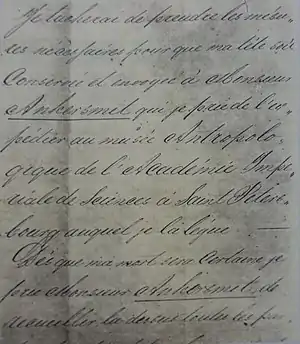 Je tâcherai de prendre les mésu-
res nécessaires pour que ma tête soit
Conservé et envoyée à Monsieur
Ankersmit qui je prie de l'ex-
pédier au musée Antropolo-
gique de l'Académie Impé-
riale de Sciences à Saint Péters-
bourg auquel je la lègue. —
Dès que ma mort sera certaine je
prie Monsieur Ankersmit, de
recueillir là dessus toutes les par-